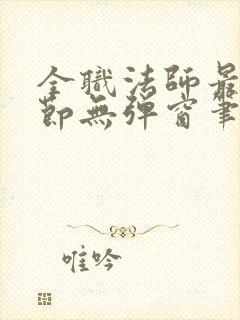 全職法師最
節無彈窗筆
唯吟